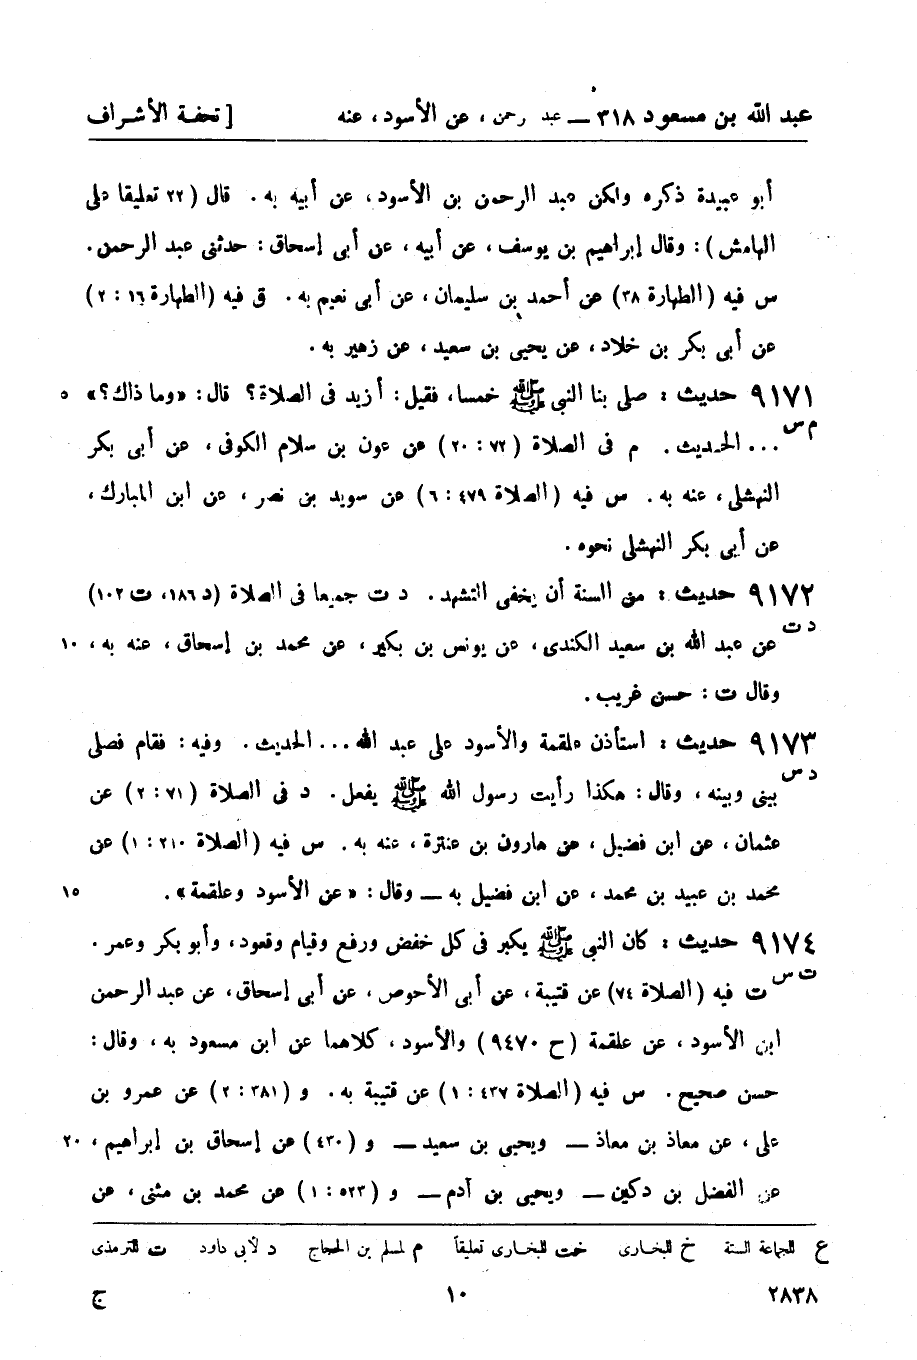 عبد الله بن مسعود ٣١٨ — عبد رحمن ، عن الأسود ، عنه [ تحفة الأشراف
أبو عبيدة ذكره ولكن عبد الرحمن بن الأسود، عن أبيه به . قال (٢٢ تعليقا على
الهامش) : وقال إبراهيم بن يوسف ، عن أبيه ، عن أبى إسحاق : حدثنى عبد الرحمن .
س فيه (الطهارة ٣٨) عن أحمد بن سليمان ، عن أبى نعيم به . ق فيه (الطهارة ١٦ : ٢)
عن أبى بكر بن خلاد ، عن يحيى بن سعيد ، عن زهير به .
٩١٧١ حديث : صلى بنا النبي ﷺ خمسا، فقيل : أزيد فى الصلاة ؟ قال : «وما ذاك ؟» ٥
م س ... الحديث . م فى الصلاة (٧٢ : ٢٠) عن عون بن سلام الكوفى ، عن أبى بكر
النهشلى ، عنه به . س فيه (الصلاة ٤٧٩ : ٦) عن سويد بن نصر ، عن ابن المبارك ،
عن أبى بكر النهشلى نحوه .
٩١٧٢ حديث : من السنة أن يخفى التشهد . د ت جميعا فى الصلاة (د ١٨٦، ت ١٠٢)
د ت عن عبد الله بن سعيد الكندى ، عن يونس بن بكير ، عن محمد بن إسحاق ، عنه به ، ١٠
وقال ت : حسن غريب .
٩١٧٣ حديث : استأذن علقمة والأسود على عبد الله ... الحديث . وفيه : فقام فصلى
د س بينى وبينه ، وقال : هكذا رأيت رسول الله ﷺ يفعل . د فى الصلاة (٧١ : ٢) عن
عثمان ، عن ابن فضيل ، عن هارون بن عنترة ، عنه به . س فيه (الصلاة ٢١٠ : ١) عن
محمد بن عبيد بن محمد ، عن ابن فضيل به — وقال : «عن الأسود وعلقمة» . ١٥
٩١٧٤ حديث : كان النبي ﷺ يكبر فى كل خفض ورفع وقيام وقعود، وأبو بكر وعمر .
ت س ت فيه (الصلاة ٧٤) عن قتيبة ، عن أبى الأحوص ، عن أبى إسحاق، عن عبد الرحمن
ابن الأسود ، عن علقمة (ح ٩٤٧٠) والأسود ، كلاهما عن ابن مسعود به ، وقال :
حسن صحيح . س فيه (الصلاة ٤٣٧ : ١) عن قتيبة به . و (٣٨١ : ٢) عن عمرو بن
على ، عن معاذ بن معاذ — ويحيى بن سعيد — و (٤٣٠) عن إسحاق بن إبراهيم ، ٢٠
عن الفضل بن دكين — ويحيى بن آدم — و (٥٢٣ : ١) عن محمد بن مثنى ، عن
ع للجماعة الستة خ للبخارى خت للبخارى تعليقاً م لمسلم بن الحجاج د لأبى داود ت للترمذى
٢٨٣٨ ١٠ ج